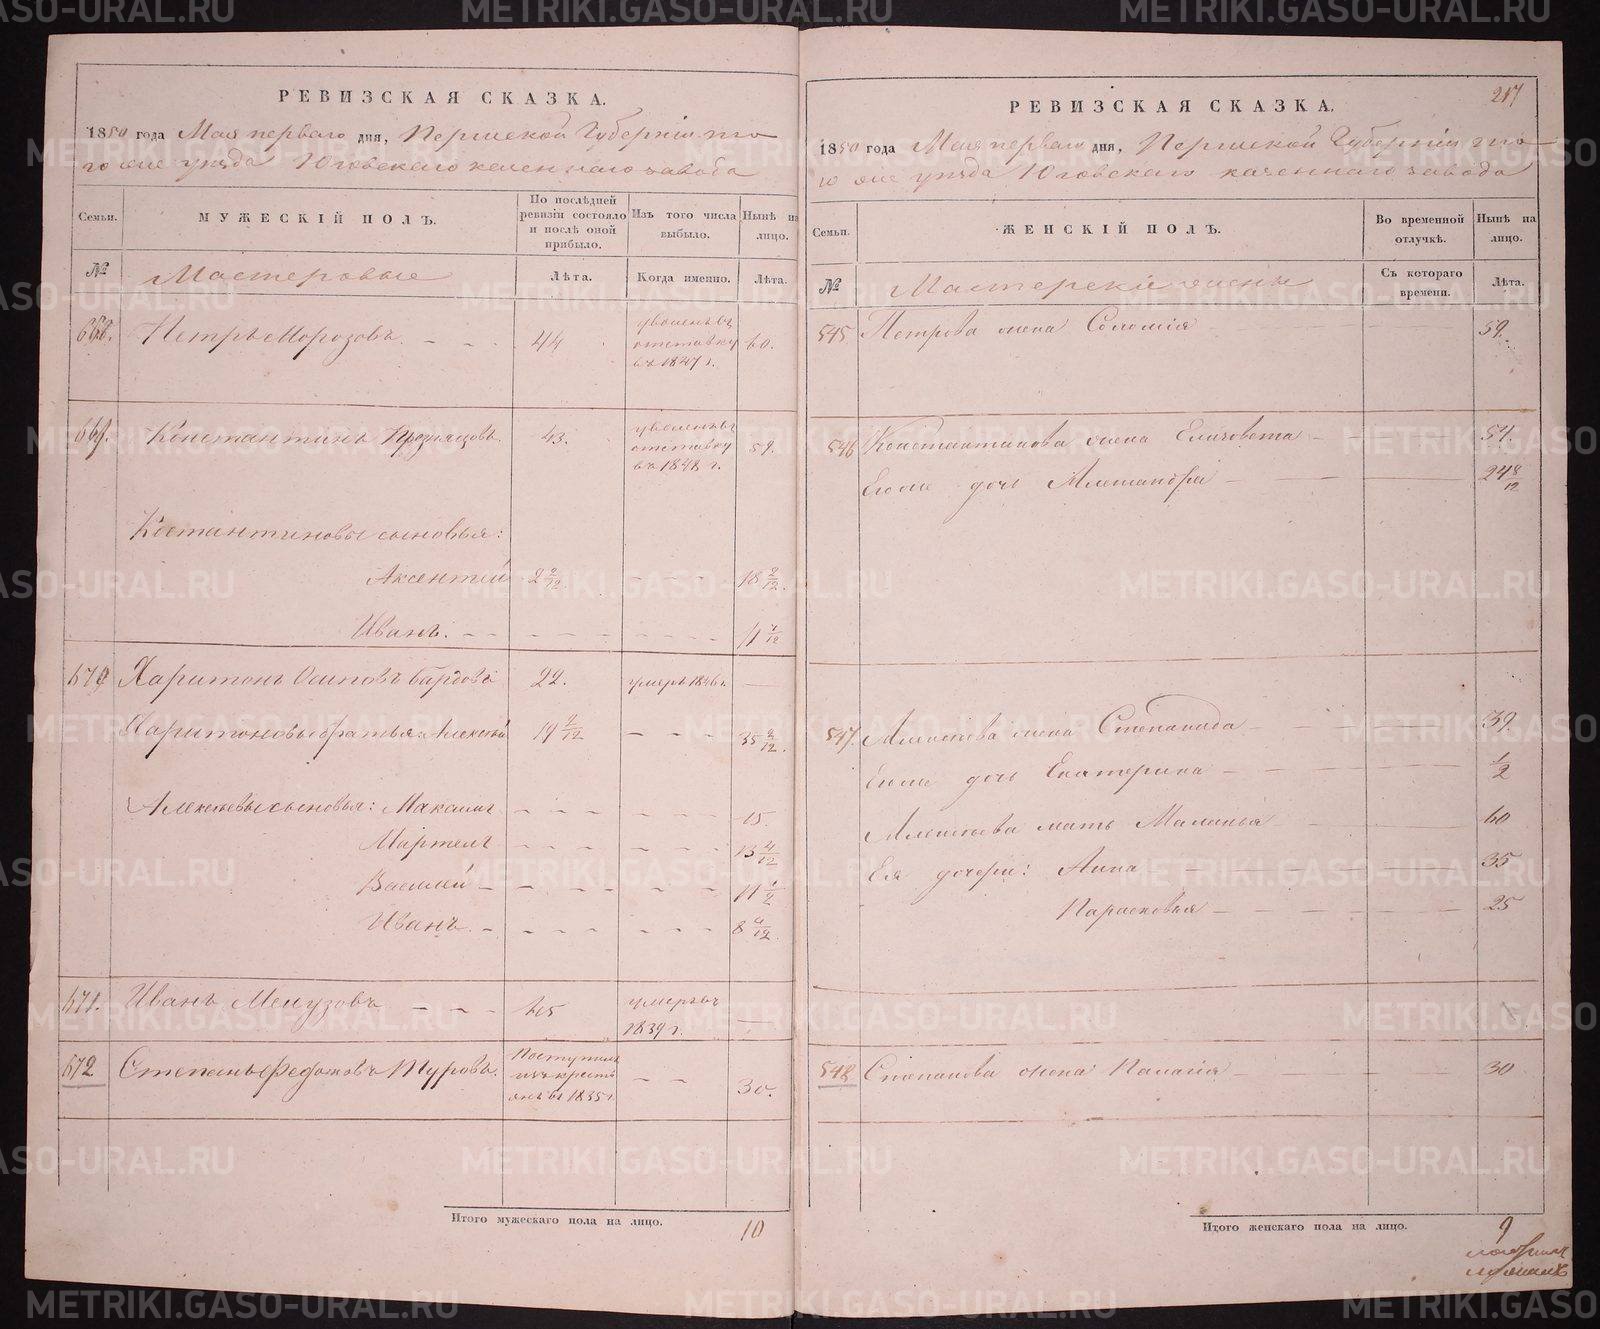 РЕВИЗСКАЯ СКАЗКА.
1850 года Мая перваго дня, Пермской Губернiи то-
го же уѣзда Юговскаго казеннаго завода
Семьи. МУЖЕСКIЙ ПОЛЪ. По послѣдней ревизiи состояло и послѣ оной прибыло. Изъ того числа выбыло. Нынѣ на лицо.
№ Мастеровые Лѣта. Когда именно. Лѣта.
668. Петръ Морозовъ 44 уволенъ въ отставку въ 1847 г. 60.
669. Константинъ 43. уволенъ въ отставку въ 1848 г. 59.
Костантиновы сыновья:
Аксентiй 2 2/12 18 2/12
Иванъ. 11 7/12
670 Харитонъ Осиповъ Бардовъ 22. умеръ 1846 г.
Харитоновы братья: Алексѣй 19 2/12 35 2/12.
Алексѣевы сыновья: Максимъ 15.
Мартелъ 13 4/12
Василiй 11 1/2
Иванъ 8 4/12
671. Иванъ Мелузовъ 45 умеръ въ 1839 г.
672 Степанъ Федотовъ Туровъ. Поступилъ изъ крестьянъ въ 1835 г. 30.
Итого мужескаго пола на лицо. 10
217
РЕВИЗСКАЯ СКАЗКА.
1850 года Мая перваго дня, Пермской Губернiи то-
го же уѣзда Юговскаго казеннаго завода
Семьи. ЖЕНСКIЙ ПОЛЪ. Во временной отлучкѣ. Нынѣ на лицо.
№ Мастерскiе жены Съ котораго времени. Лѣта.
545 Петрова жена Соломiя 59.
546 Константинова жена Елизовета 54.
Егоже дочь Александра 24 8/12
547. Алексѣева жена Степанида 39.
Егоже дочь Екатерина 1/2
Алексѣева мать Маланья 60
Ея дочери: Анна 35
Парасковья 25
548 Степанова жена Палагiя 30
Итого женскаго пола на лицо. 9